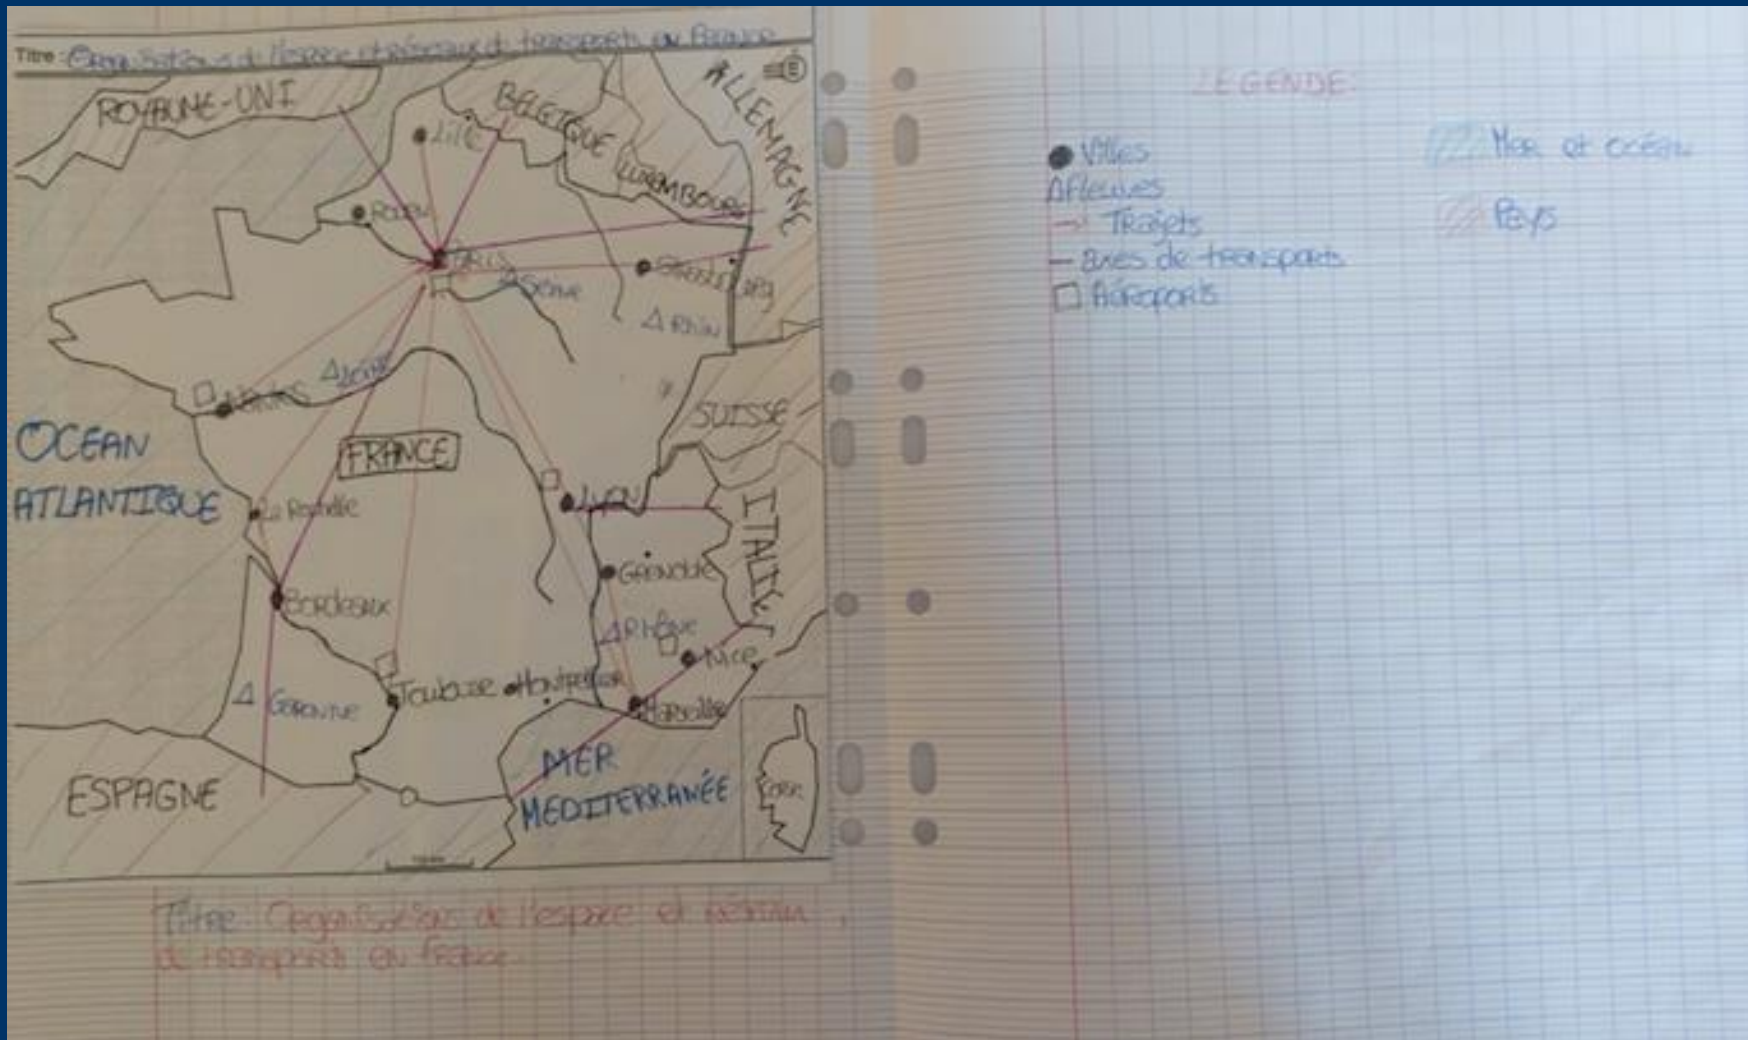 Titre : Organisations de l'espace et réseaux de transports en France
ROYAUME-UNI
BELGIQUE
ALLEMAGNE
LUXEMBOURG
Lille
Rouen
PARIS
Strasbourg
Δ Seine
Δ Rhin
Δ Loire
Nantes
SUISSE
OCEAN
ATLANTIQUE
FRANCE
La Rochelle
Lyon
ITALIE
Grenoble
Bordeaux
Δ Rhône
Nice
Toulouse
Montpellier
Marseille
Δ Garonne
ESPAGNE
MER
MEDITERRANÉE
Titre: Organisations de l'espace et réseau
de transports en France.
LEGENDE:
Villes
Δ fleuves
Trajets
axes de transports
Aéroports
Mer et océan
Pays